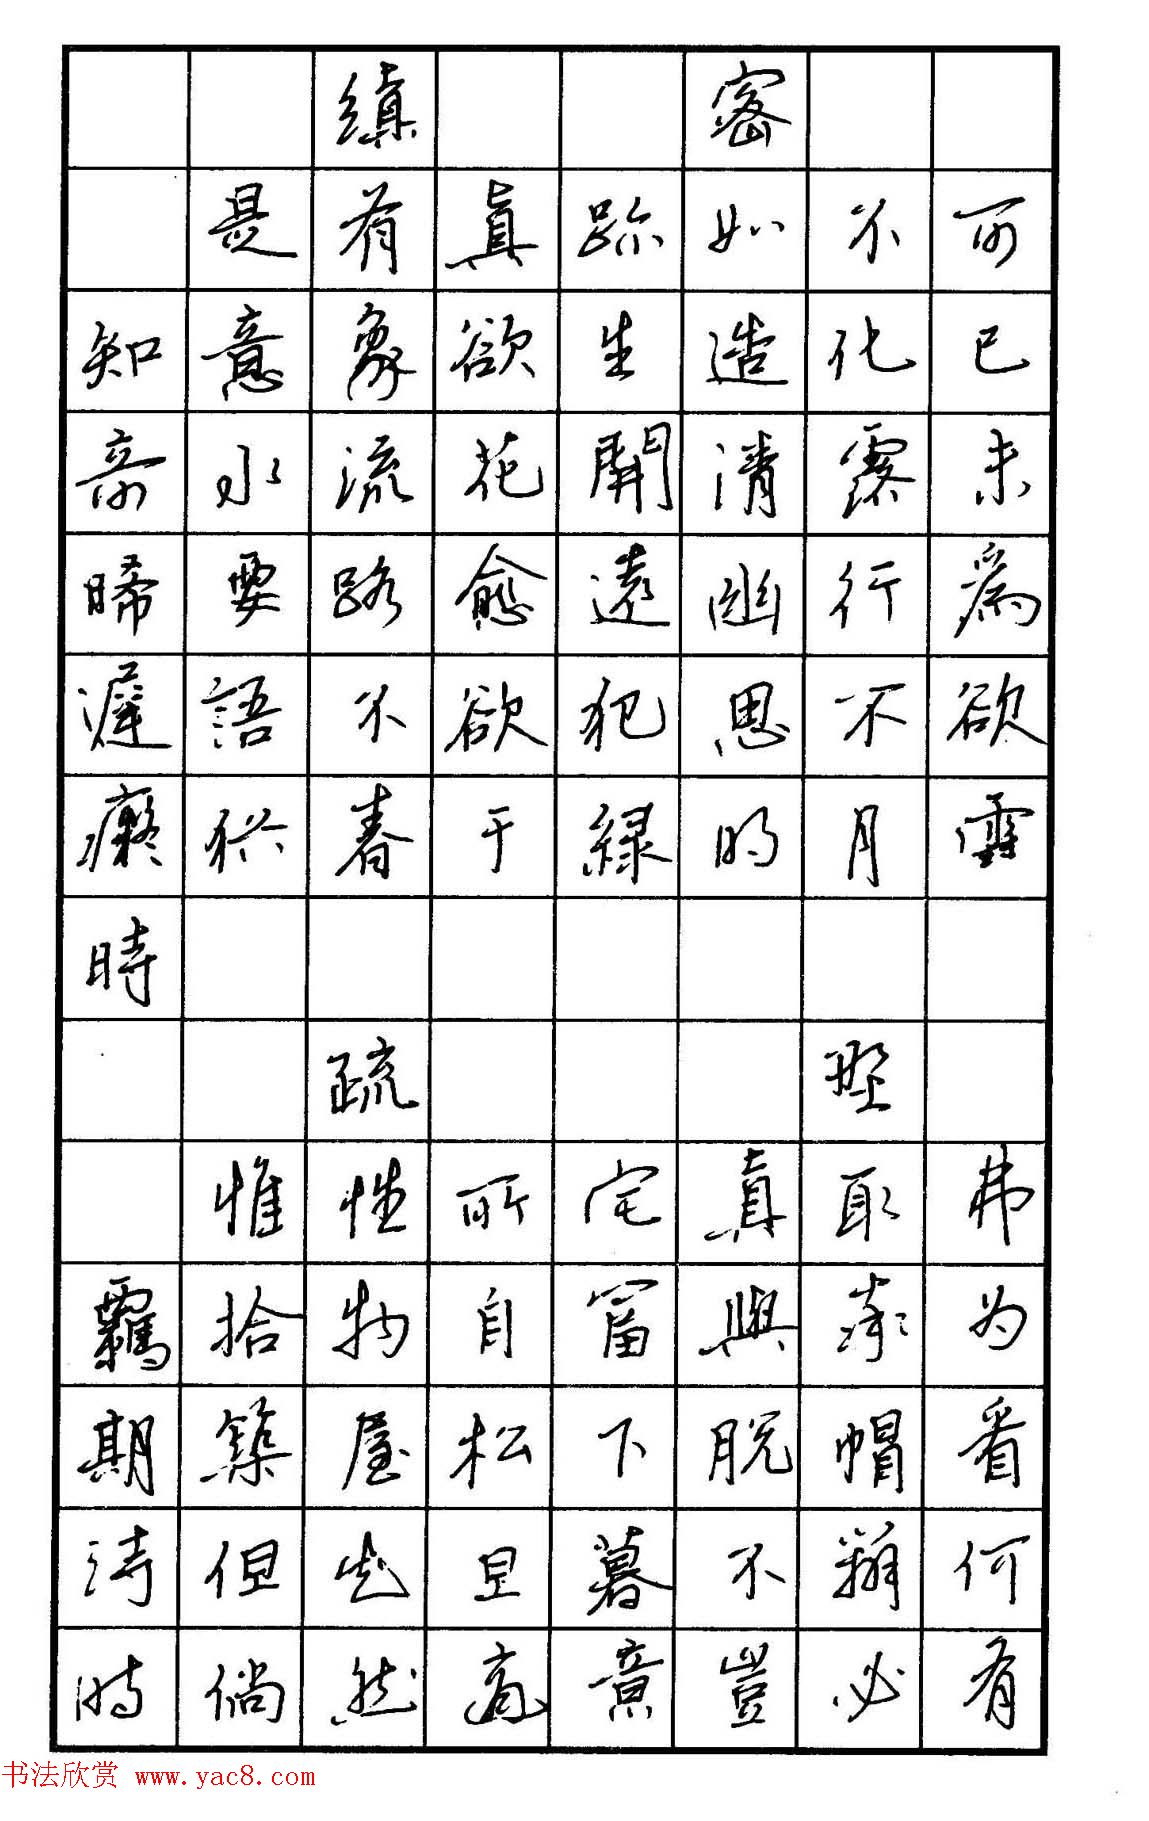 縝密
是有真跡如不可
知意象欲生造化已
奇水流花開清露未
晞要路愈遠幽行為
遲語不欲犯思不欲
癡猶春于綠明月雪
時
疏野
惟性所宅真取弗
羈拾物自富與率为
期築屋松下脫帽看
诗但知旦暮不辨何
时倘然適意豈必有
书法欣赏 www.yac8.com